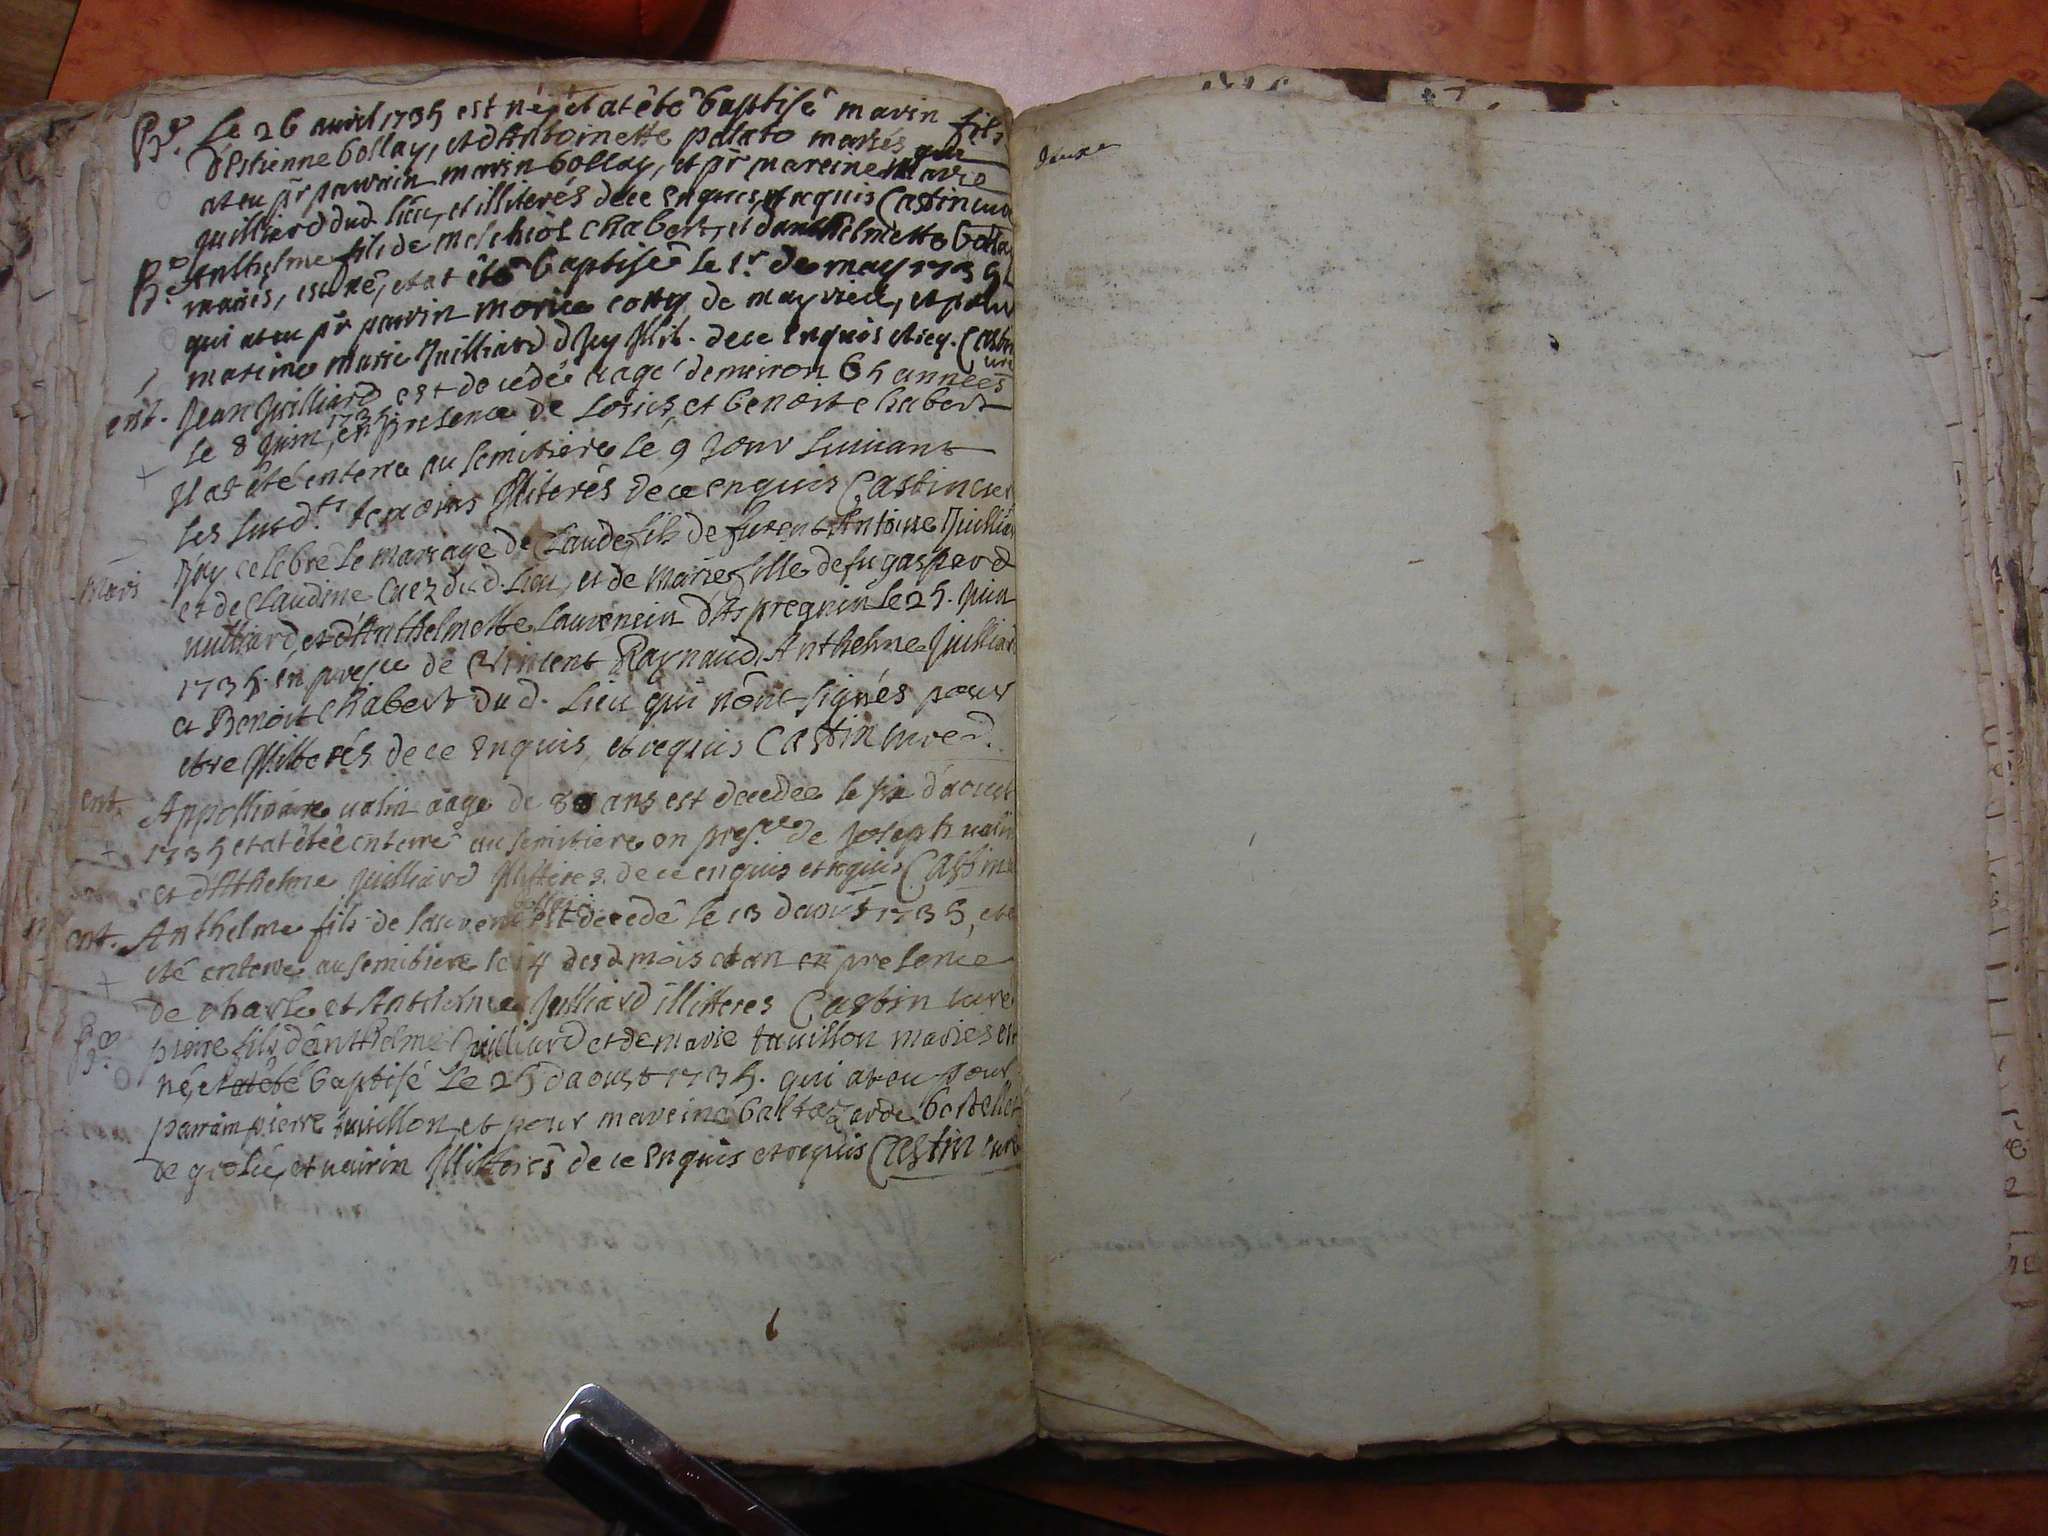 B.e Le 26 auril 1735 est né, et at êté baptisé marin fils
d'Estienne bollay, et d'Anthoinette palato mariés qui
at eu pr parrain marin bollay, et pr mareine marie
Juilliard dud. lieu, et illiterés de ce enquis, et requis Castin curé
B.e Anthelme fils de melchiol chabert, et d'anthelmette bolla
mariés, est né, et at êté baptisé le 1r de may 1735
qui at eu pr parrin morice de mayrieu, et pour
mareine marie Juilliard d'Icy illit. de ce enquis et req. Castin
curé
ent. Jean Juilliard est decédé aagé d'enuiron 65 années
le 8 Juin 1735, en presence de et benoit chabert
Il at êté enterré au semitiere le 9 jour suiuant
les susd.ts temoins Illiterés de ce enquis Castin curé
mari J'ay celebré le mariage de Claude fils de fu Antoine Juilliar
et de Claudine Cuez dud. lieu, et de marie fille de fu gasperd
uulliard, et d'Anthelmette Laurencin d'Aspregnin le 25. Juin
1735. en presce de Vincent Raynaud, Anthelme Juilliar
et Benoit chabert dud. lieu qui n'ont signés pour
etre Illiterés de ce enquis, et requis Castin curé
ent. Appollinaire ualin aagé de 80 ans est decedée le d'aoust
1735 et at êtée enterré au semitiere en presce de Joseph ualin
et d'Athelme Juilliard Illiteres de ce enquis et requis Castin
ent. Anthelme fils de laurent bollay est decedé le 13 d'aoust 1735, et
eté enterré au semitiere le 14 desd mois et an en presence
de charle et Anthelme Juilliard illitteres Castin curé
B.e pierre fils d'anthelme Juilliard et de marie tuillon mariés est
né, et at êté baptisé le 25 d'aoust 1735. qui at eu pour
parrain pierre tuillon, et pour mareine baltazarde bortellet
de et Illiterés de ce enquis et requis Castin curé